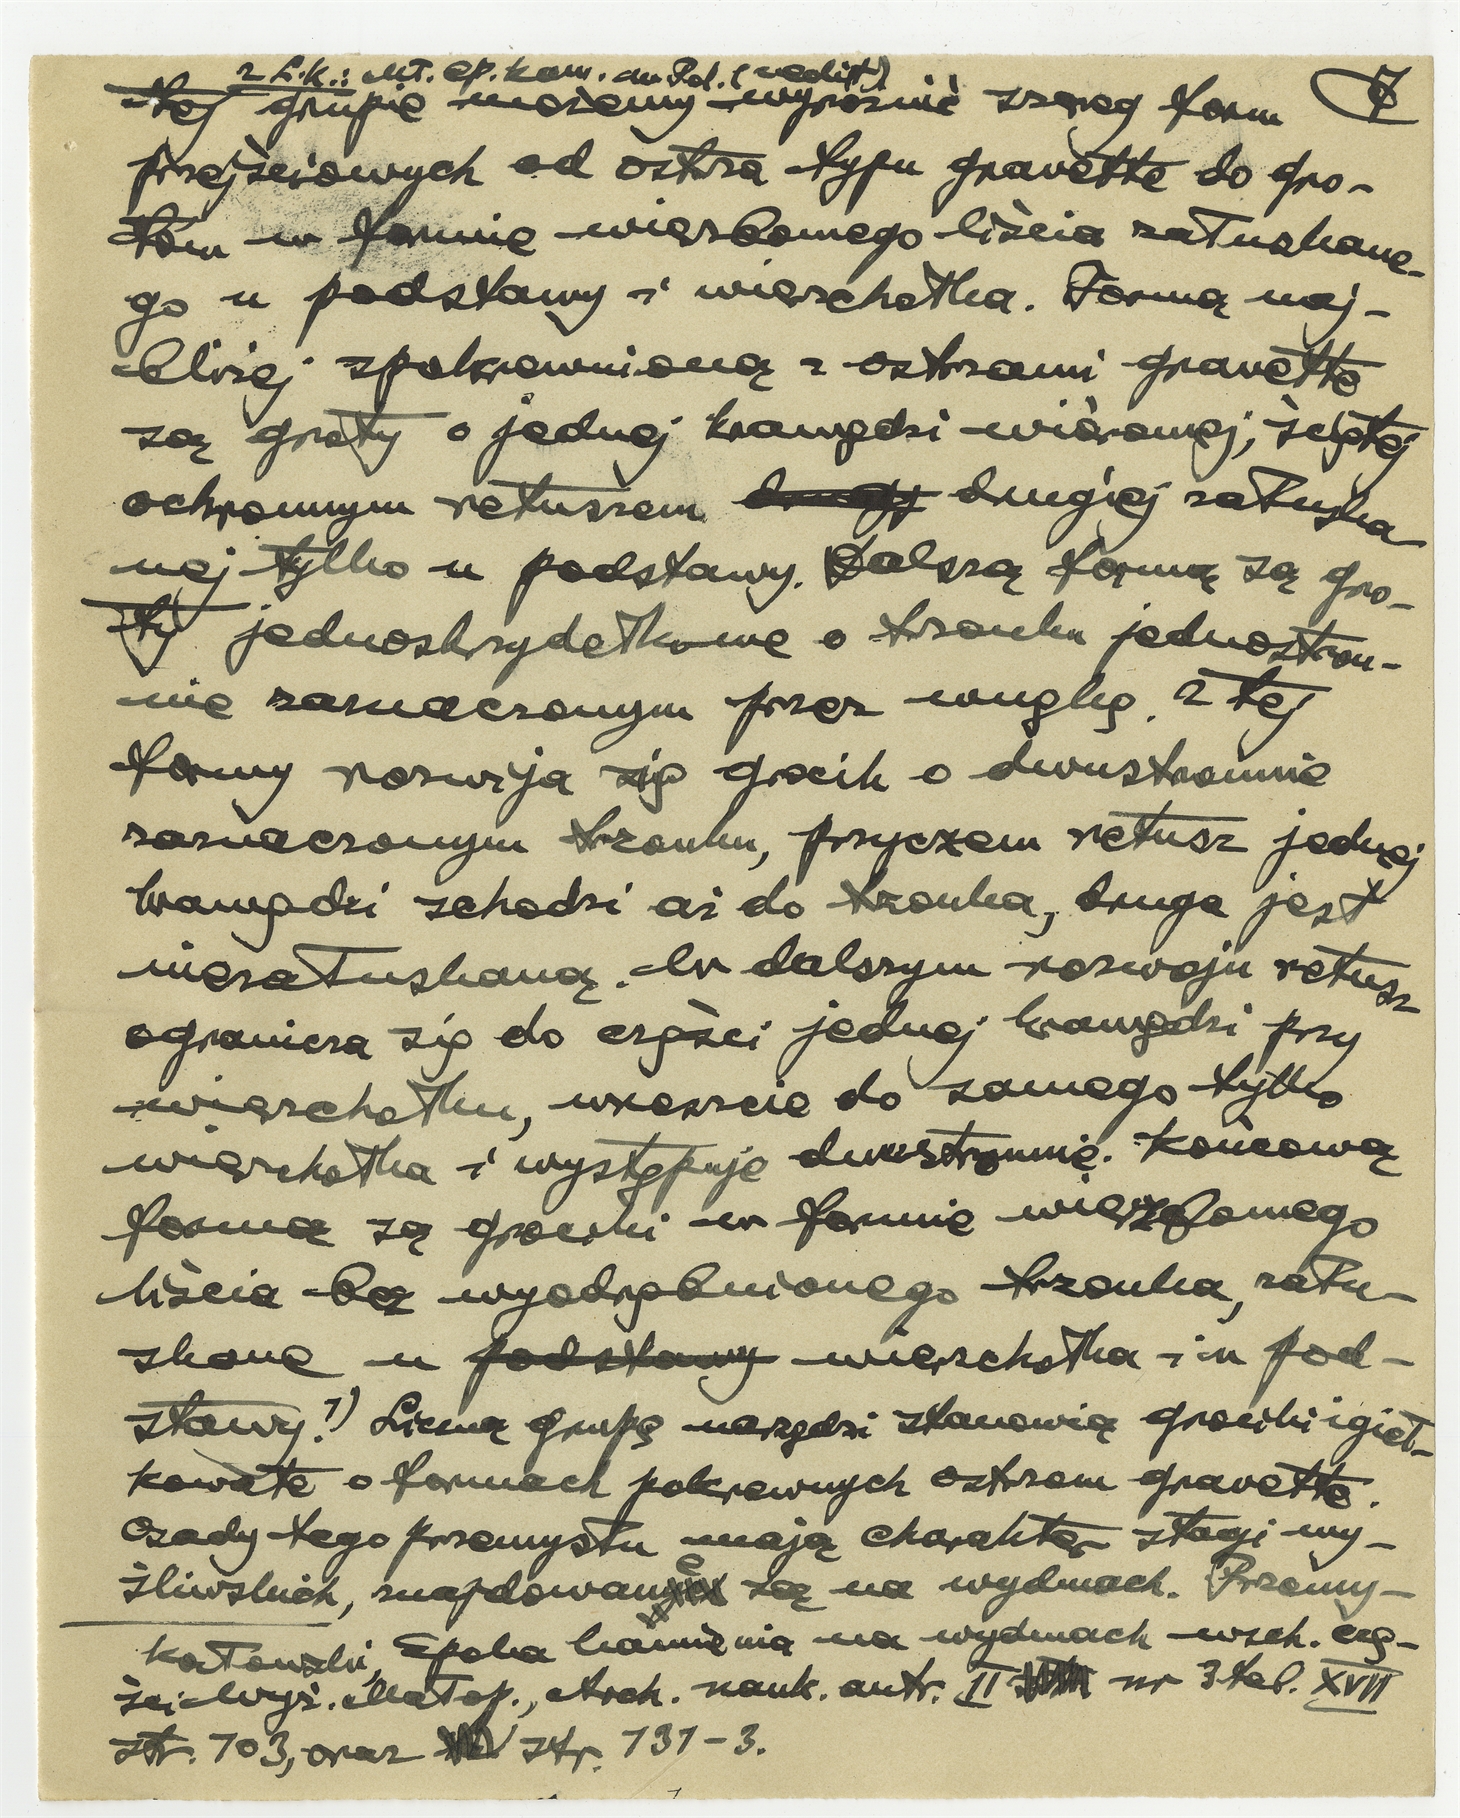 2 L.K.: Mł. ep. kam. w Pol. (
tej grupie możemy wyróżnić szereg form 7
przejściowych od ostrza typu gravette do gro-
tów w formie wierzbowego liścia załuskane-
go u podstawy i wierzchołka. Formą naj-
bliżej spokrewnioną z ostrzami gravette
są groty o jednej krawędzi wiórowej, ściętej
ochronnym retuszem drugiej załuska
nej tylko u podstawy. Dalszą formą są gro-
ty jednoskrzydełkowe o trzonku jednostron-
nie zaznaczonym przez wnękę. Z tej
formy rozwija się grocik o dwustronnie
zaznaczonym trzonku, przyczem retusz jednej
krawędzi schodzi aż do trzonka, druga jest
niezałuskaną. W dalszym rozwoju retusz
ogranicza się do części jednej krawędzi przy
wierzchołku, wreszcie do samego tylko
wierzchołka i występuje dwustronnie. Końcową
formą są grociki w formie wierzbowego
liścia bez wyodrębnionego trzonka, zału-
skane u podstawy wierzchołka i u pod-
stawy.1) Liczną grupę narzędzi stanowią grociki igieł-
kowate o formach pokrewnych ostrzom gravette.
Osady tego przemysłu mają charakter stacji my-
śliwskich, znajdowane są na wydmach. Przemy-
Kozłowski, Epoka kamienia na wydmach wsch. czę-
ści Wyż. Małop., Arch. nauk. antr. II nr 3 tabl. XVII
str. 103, oraz str. 131-3.